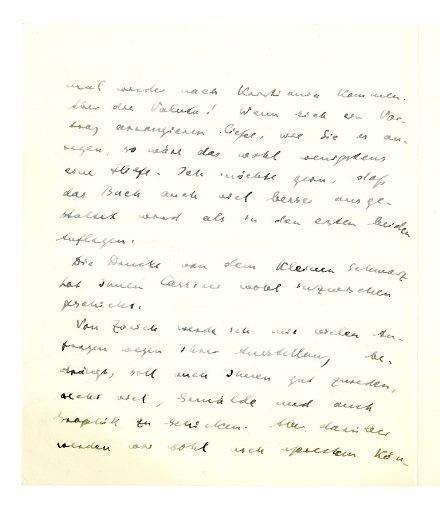 mal wieder nach Kristiania kommen.
Aber die Valuta! Wenn sich ein Vor-
trag arrangieren liesse, wie Sie es an-
regen, so wäre das wohl wenigstens
eine Hilfe. Ich möchte gern, daß
das Buch auch viel besser ausge-
stattet wird als in den ersten beiden
Auflagen.
Die Drucke von dem kleinen Schwarz
hat Ihnen Cassirer wohl inzwischen
geschickt.
Von Zürich werde ich mit vielen An-
fragen wegen Ihrer Ausstellung be-
drängt, soll auch Ihnen gut zureden,
recht viel, Gemälde und auch
Graphik zu schicken. Aber darüber
werden wir wohl noch sprechen kön-